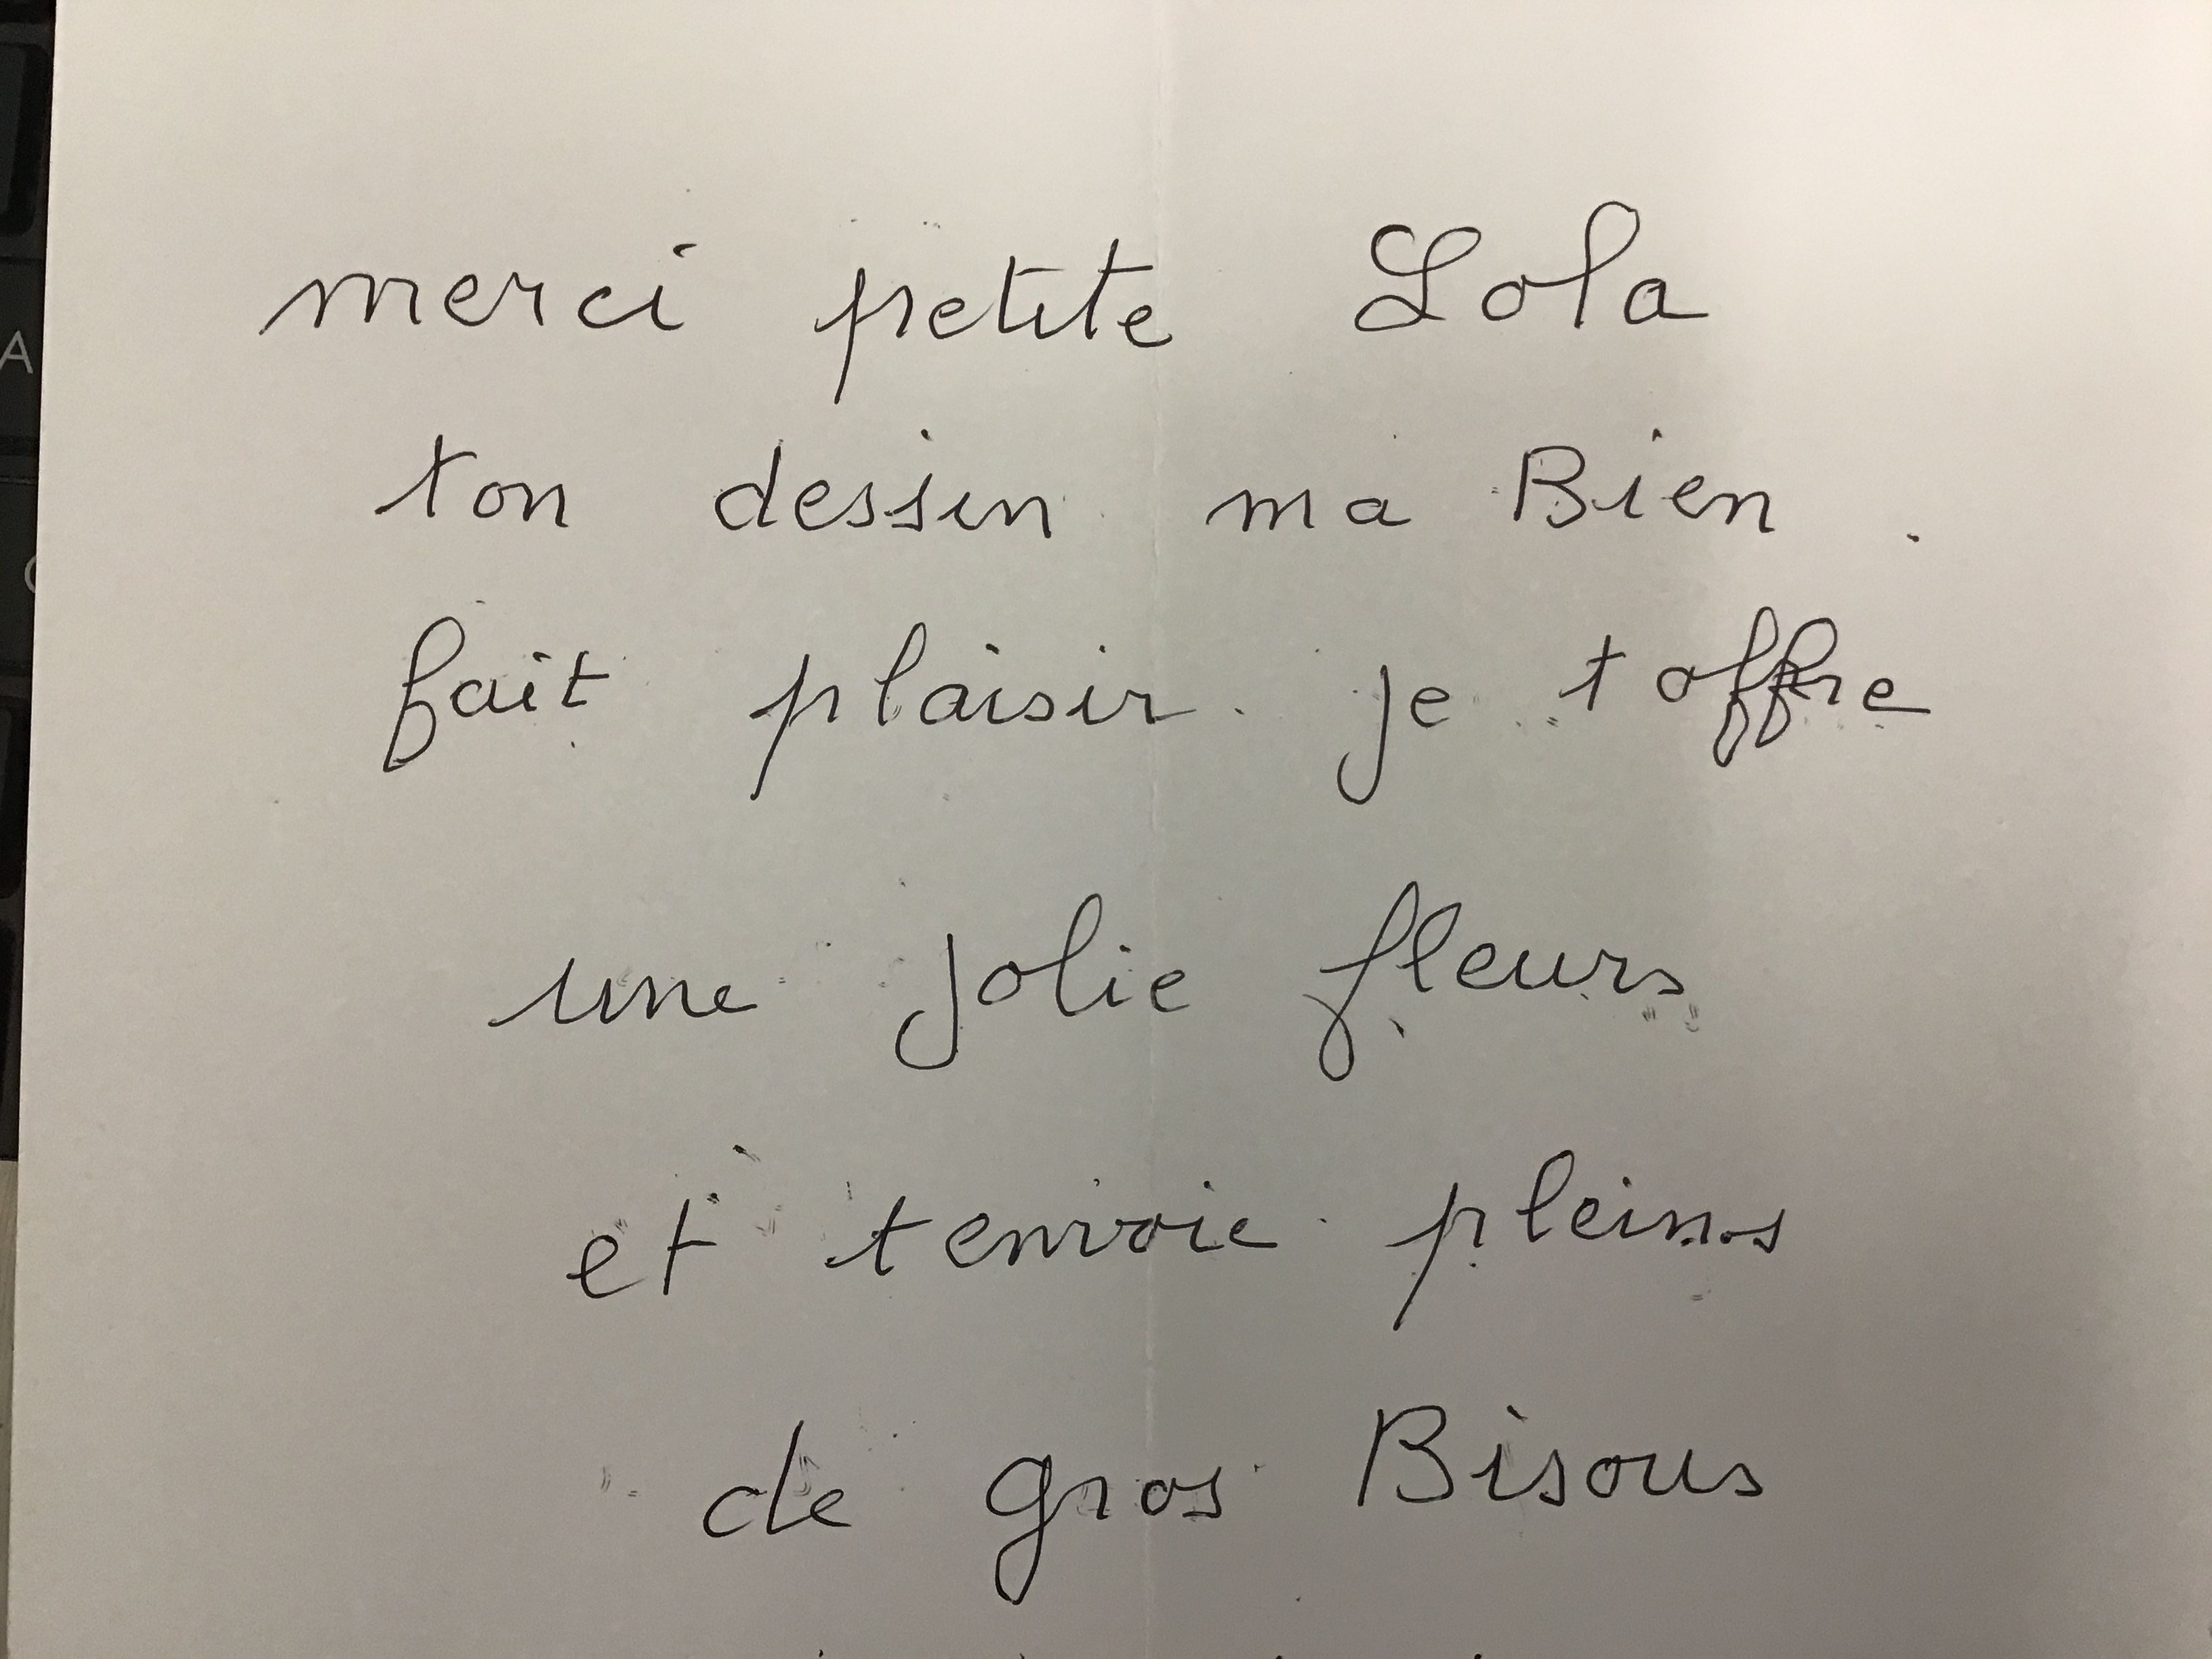 merci petite Lola
ton dessin ma Bien
fait plaisir. je t offre
une jolie fleurs
et t envoie pleins
de gros Bisous
A